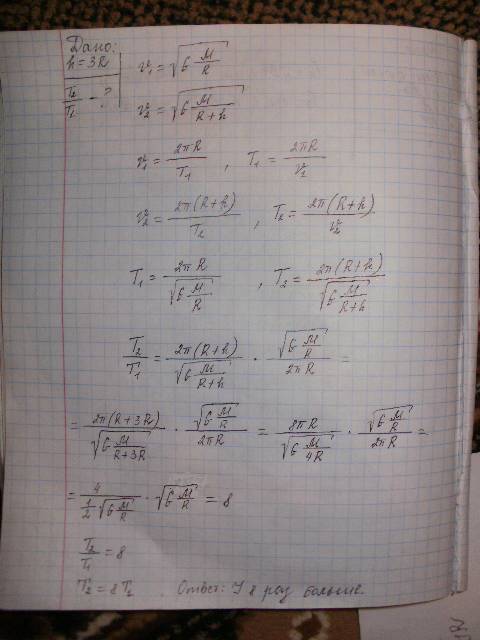 Дано:
h = 3R
T₂/T₁ - ?
v₁ = √(G M/R)
v₂ = √(G M/(R+h))
v₁ = 2πR/T₁ , T₁ = 2πR/v₁
v₂ = 2π(R+h)/T₂ , T₂ = 2π(R+h)/v₂
T₁ = 2πR/√(G M/R) , T₂ = 2π(R+h)/√(G M/(R+h))
T₂/T₁ = 2π(R+h)/√(G M/(R+h)) · √(G M/R)/2πR =
= 2π(R+3R)/√(G M/(R+3R)) · √(G M/R)/2πR = 8πR/√(G M/4R) · √(G M/R)/2πR =
= 4/(1/2 √(G M/R)) · √(G M/R) = 8
T₂/T₁ = 8
T₂ = 8T₂ . Ответ: 8 раз больше.